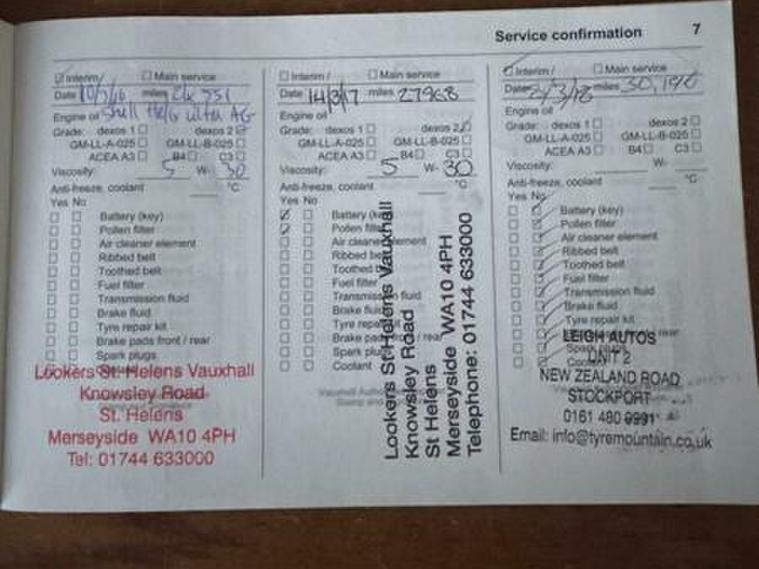 Service confirmation 7
Interim / Main service
Date 10/ /16 miles
Engine oil Shell Helix ultra AG
Grade: dexos 1 dexos 2
GM-LL-A-025 GM-LL-B-025
ACEA A3 B4 C3
Viscosity: 5 W- 30
Anti-freeze, coolant °C
Yes No
Battery (key)
Pollen filter
Air cleaner element
Ribbed belt
Toothed belt
Fuel filter
Transmission fluid
Brake fluid
Tyre repair kit
Brake pads front / rear
Spark plugs
Lookers St. Helens Vauxhall
Knowsley Road
St. Helens
Merseyside WA10 4PH
Tel: 01744 633000
Interim / Main service
Date 14/3/17 miles 27968
Engine oil
Grade: dexos 1 dexos 2
GM-LL-A-025 GM-LL-B-025
ACEA A3 B4 C3
Viscosity: 5 W- 30
Anti-freeze, coolant °C
Yes No
Battery (key)
Pollen filter
Air cleaner element
Ribbed belt
Toothed belt
Fuel filter
Transmission fluid
Brake fluid
Tyre repair kit
Brake pads front / rear
Spark plugs
Coolant
Lookers St Helens Vauxhall
Knowsley Road
St Helens
Merseyside WA10 4PH
Telephone: 01744 633000
Interim / Main service
Date 2/3/18 miles 30,190
Engine oil
Grade: dexos 1 dexos 2
GM-LL-A-025 GM-LL-B-025
ACEA A3 B4 C3
Viscosity: W-
Anti-freeze, coolant °C
Yes No
Battery (key)
Pollen filter
Air cleaner element
Ribbed belt
Toothed belt
Fuel filter
Transmission fluid
Brake fluid
Tyre repair kit
LEIGH AUTOS
UNIT 2
NEW ZEALAND ROAD
STOCKPORT
0161 480 9991
Email: info@tyremountain.co.uk